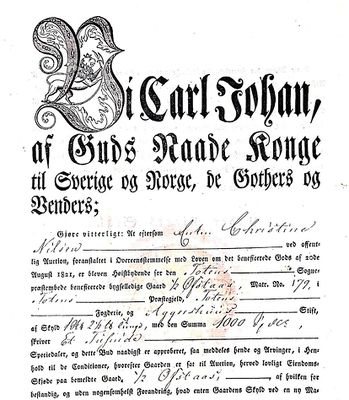 Vi Carl Johan,
af Guds Naade Konge
til Sverige og Norge, de Gothers og
Venders;
Gjøre vitterligt: At eftersom Enken Christine
Nilsen ved offent-
lig Auction, foranstaltet i Overeensstemmelse med Loven om det beneficerede Gods af
August 1821, er bleven Høistbydende for den Totens Sogne-
præstembede beneficerede bygselledige Gaard 1/2 Ofstaas, Matr. No. 179,
i Totens Præstegjeld, Totens
Fogderie, og Aggershuus Stift,
af Skyld med den Summa 1000 Spdlr,
skriver Et Tusinde
Speciedaler, og dette Bud naadigst er approberet, saa meddeles hende og Arvinger, i Hen-
hold til de Conditioner, hvorefter Gaarden er sat til Auction, herved lovligt Eiendoms-
Skjøde paa bemeldte Gaard, 1/2 Ofstaas, af hvilken for
bestandig, og uden nogensomhelst Forandring, hvad enten Gaardens Skyld ved en ny Ma-